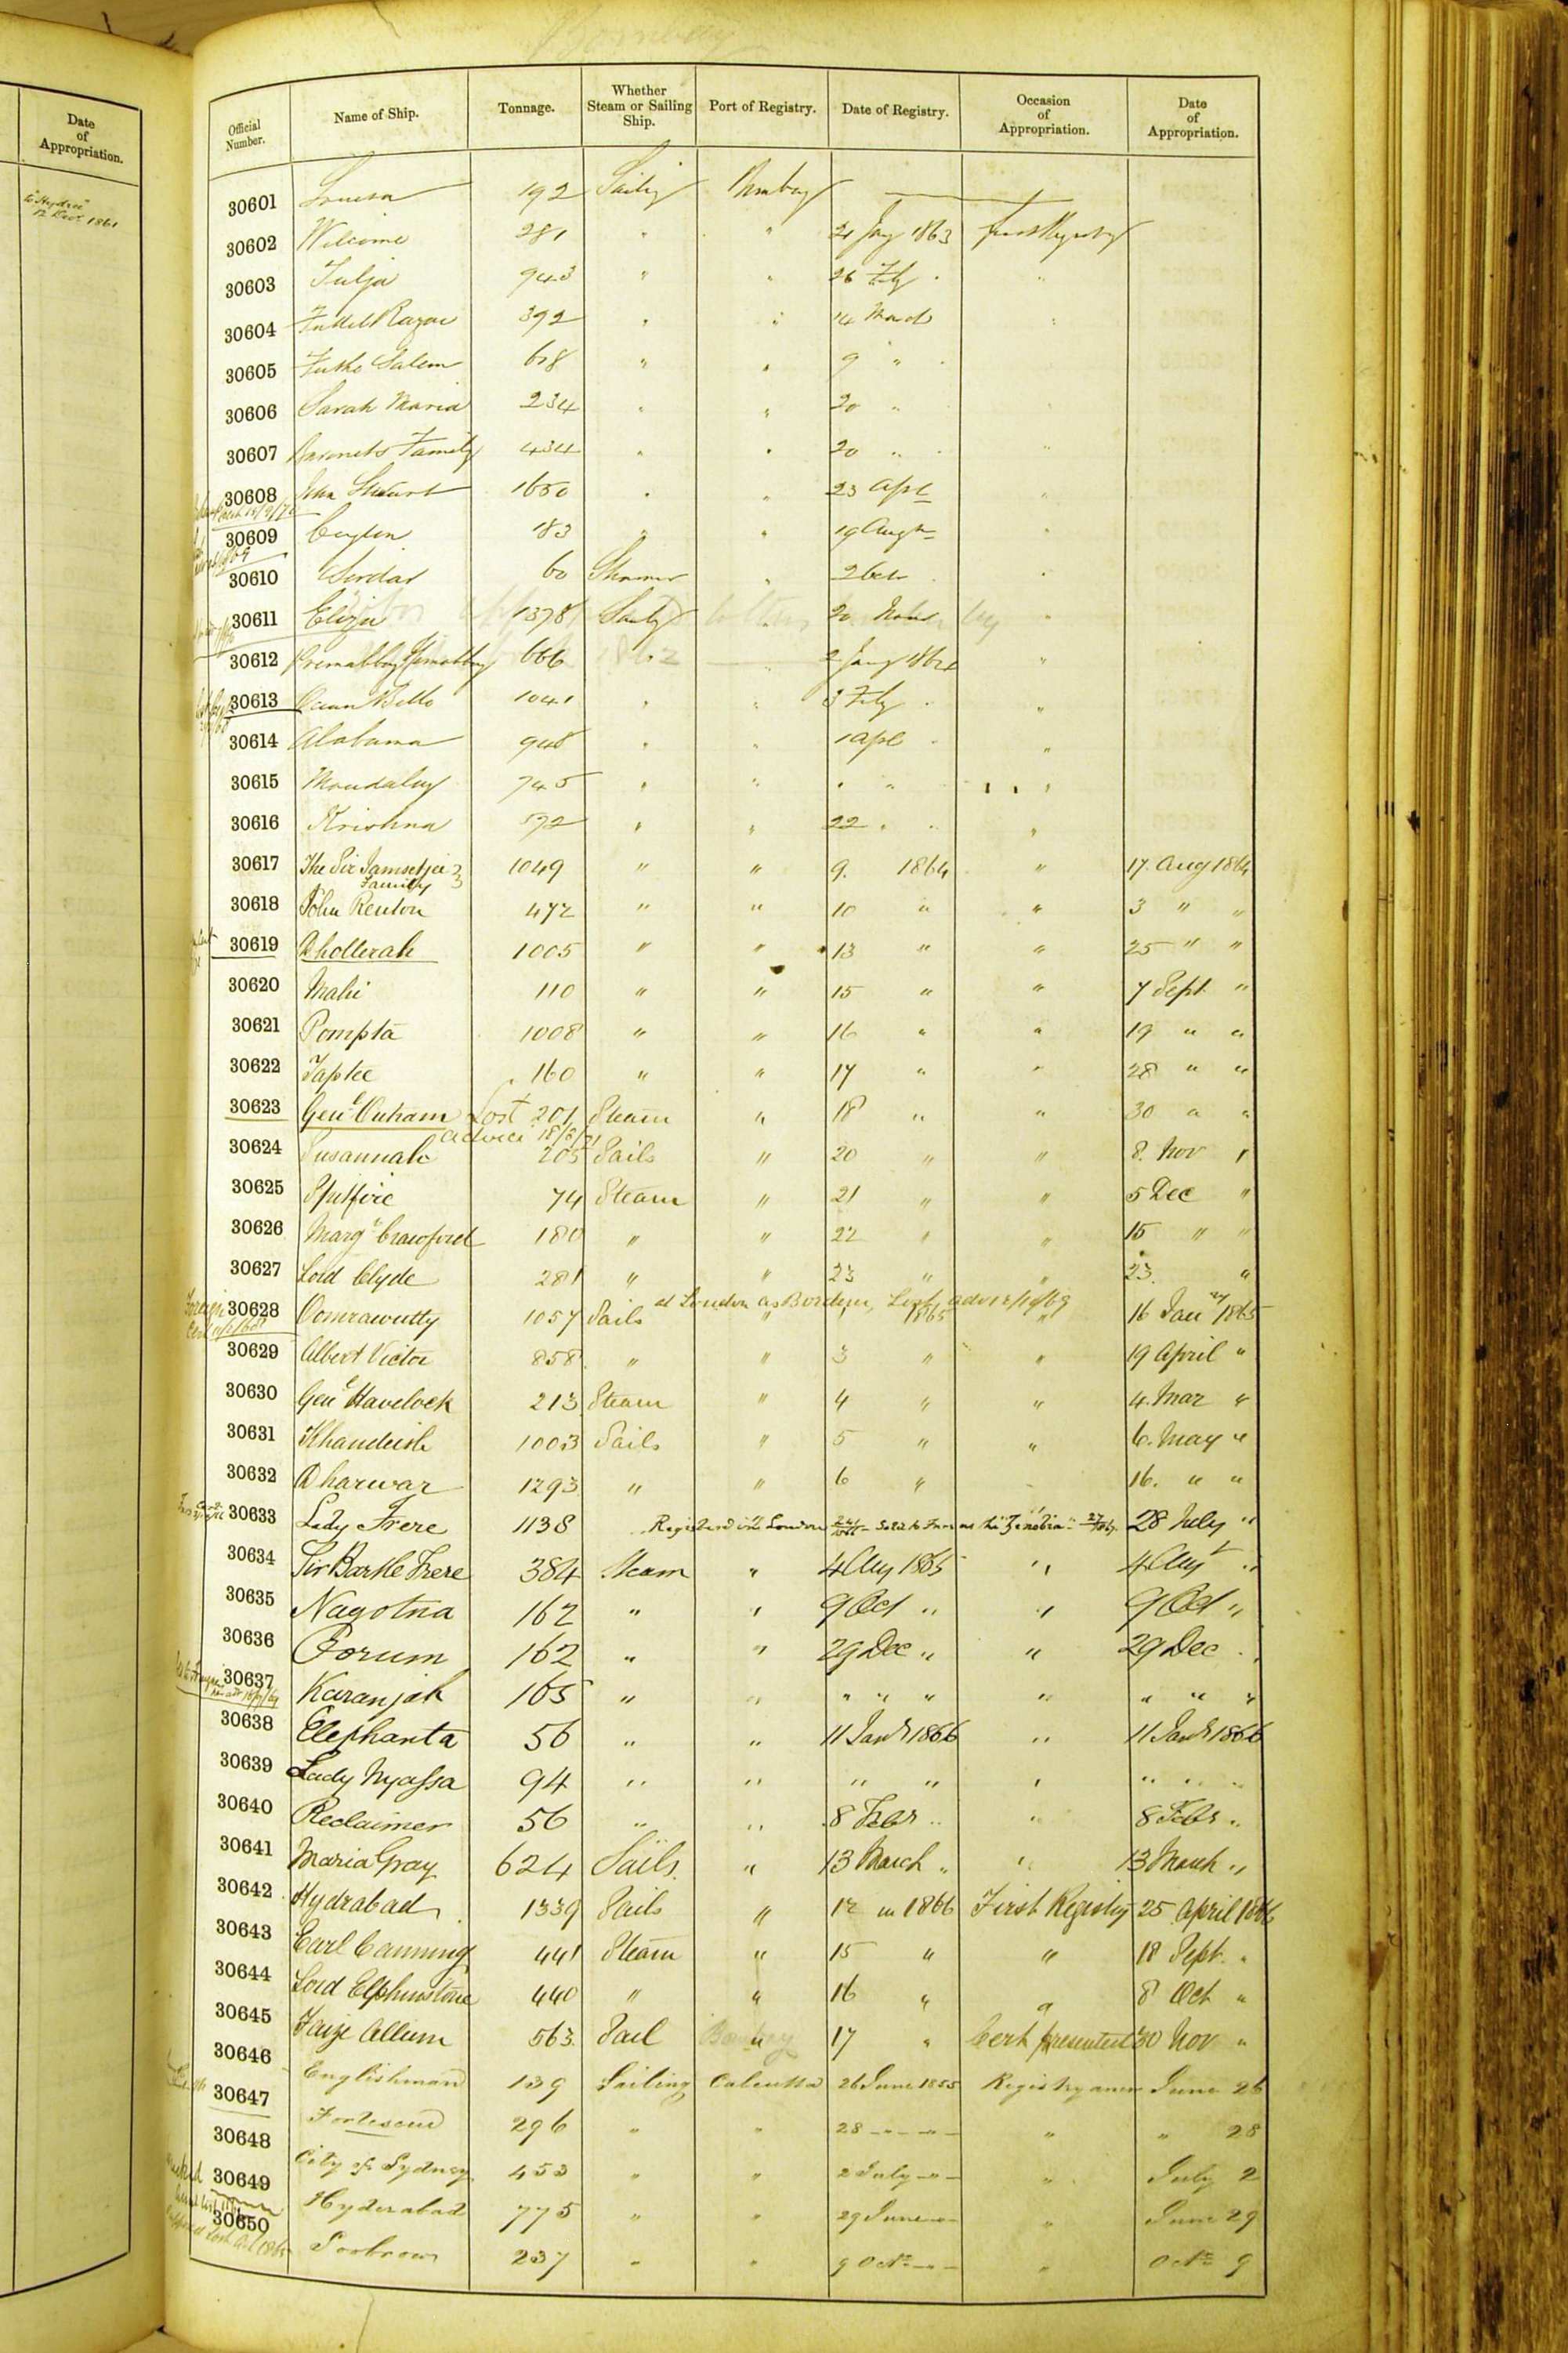 Bombay
Date of Appropriation.
12 Dec. 1861
Official Number. Name of Ship. Tonnage. Whether Steam or Sailing Ship. Port of Registry. Date of Registry. Occasion of Appropriation. Date of Appropriation.
30601 Louisa 192 Sailing Bombay
30602 Welcome 281 " " 21 Jany 1863 First Registry
30603 Tulja 943 " " 26 Feby " "
30604 Futtel Razac 392 " " 14 March "
30605 Futhe Salem 618 " " 9 " "
30606 Sarah Maria 234 " " 20 " "
30607 Baronets Family 434 " " 20 " " "
30608 John Stewart 1650 " " 23 Apl "
30609 Ceylon 183 " " 19 Augt "
30610 Sirdar 60 Steamer " 2 Octr "
30611 Eliza 1378 Sailg " 20 Novr "
30612 Premabhoy Hemabhoy 666 " " 2 Jany 1864 "
30613 Ocean Belle 1041 " " 3 Feby "
30614 Alabama 948 " " 1 Apl "
30615 Mondaley 745 " " " " " " "
30616 Krishna 592 " " 22 " " "
30617 The Sir Jamsetjee Family 1049 " " 9. 1864 " 17. Aug 1864
30618 John Renton 472 " " 10 " " 3 " "
30619 Dhollerah 1005 " " 13 " " 25 " "
30620 Mahi 110 " " 15 " " 7 Sept "
30621 Pompta 1008 " " 16 " " 19 " "
30622 Taptee 160 " " 17 " " 28 " "
30623 Genl Outram Lost 201 Steam " 18 " " 30 " "
advice 18/2/71
30624 Susannah 205 Sails " 20 " " 8. Nov "
30625 Spitfire 74 Steam " 21 " " 5 Dec "
30626 Margt Crawford 180 " " 22 " " 15 " "
30627 Lord Clyde 281 " " 23 " " 23. "
at London as Borderer, Lost advce/10/69
30628 Oomrawutty 1057 Sails " " 1865 " 16 Jany 1865
30629 Albert Victor 858 " " 3 " " 19 April "
30630 Genl Havelock 213 Steam " 4 " " 4. Mar "
30631 Khandeish 1003 Sails " 5 " " 6. May "
30632 Dharwar 1293 " " 6 " 16. " "
30633 Lady Frere 1138 Registered in London Sold to as the "Zenobia" 28 July "
30634 Sir Bartle Frere 384 Steam " 4 Aug 1865 " 4 Augt "
30635 Nagotna 162 " " 9 Oct " " 9 Oct "
30636 Forum 162 " " 29 Dec " " 29 Dec "
30637 Karanjah 165 " " " " " " " " "
30638 Elephanta 56 " " 11 Jany 1866 " 11 Jany 1866
30639 Lady Nyassa 94 " " " " " " " "
30640 Reclaimer 56 " " 8 Febr " " 8 Febr "
30641 Maria Gray 624 Sails. " 13 March " " 13 March "
30642 Hydrabad 1339 Sails " 12 in 1866 First Registry 25 April 1866
30643 Earl Canning 441 Steam " 15 " " 18 Sept. "
30644 Lord Elphinstone 440 " " 16 " " 8 Oct "
30645 Faize Allum 563 Sail " 17 " Cert presented 30 Nov "
30646 Englishman 139 Sailing Calcutta 26 June 1855 Registry anew June 26
30647 Fortescue 296 " " 28 - " - " - " " 28
30648 City of Sydney 453 " " 2 July - " - " July 2
30649 Hyderabad 775 " " 29 June - " - " June 29
30650 237 " " 9 Octr - " - " Octr 9